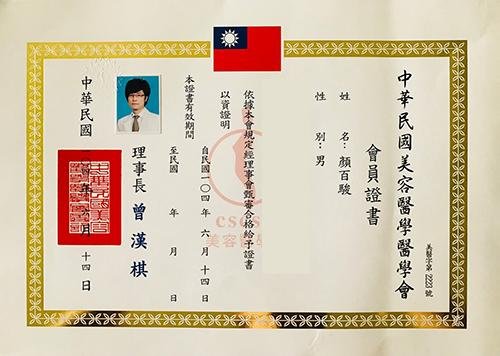 中華民國美容醫學醫學會
美醫字第 2223 號
會員證書
姓 名：顏百駿
性 別：男
依據本會規定經理事會甄審合格給予證書
以資證明
本證書有效期間
自民國一〇四年 六 月 十四 日
至民國 年 月 日
理事長 曾漢棋
中華民國 一〇四年 六月 十四 日
cscsm
美容醫學